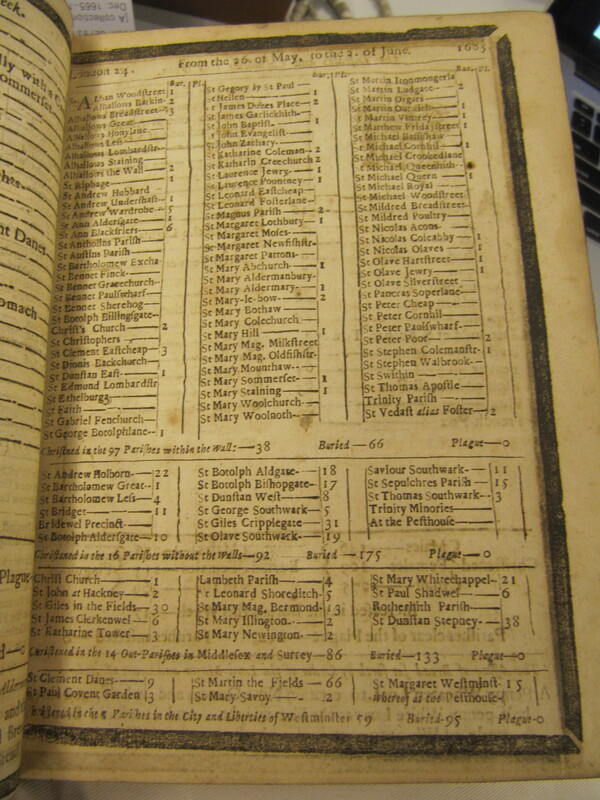 London 24. From the 26. of May, to the 2. of June. 1685
Bur. Pl.
St Alban Woodstreet 1
Alhallows Barkin 2
Alhallows Breadstreet 3
Alhallows Great 1
Alhallows Honylane
Alhallows Less
Alhallows Lombardstr
Alhallows Staining
Alhallows the Wall 2
St Alphage 1
St Andrew Hubbard
St Andrew Undershaft 1
St Andrew Wardrobe 5
St Ann Aldersgate 1
St Ann Blackfriers 6
St Antholins Parish
St Austins Parish
St Bartholomew Excha
St Bennet Finck
St Bennet Gracechurch
St Bennet Paulswharf
St Bennet Sherehog
St Botolph Billingsgate
Christ's Church 2
St Christophers
St Clement Eastcheap 3
St Dionis Backchurch
St Dunstan East 1
St Edmund Lombardstr
St Ethelburga
St Faith
St Gabriel Fenchurch
St George Botolphlane 1
Bur. Pl.
St Gregory by St Paul
St Hellen 1
St James Dukes Place 2
St James Garlickhith
St John Baptist 1
St John Evangelist
St John Zachary
St Katharine Coleman 2
St Katharin Creechurch 2
St Laurence Jewry 1
St Laurence Pountney 1
St Leonard Eastcheap
St Leonard Fosterlane
St Magnus Parish 2
St Margaret Lothbury 1
St Margaret Moses
St Margaret Newfishstr
St Margaret Pattons
St Mary Abchurch 1
St Mary Aldermanbury
St Mary Aldermary 1
St Mary-le-bow 2
St Mary Bothaw
St Mary Colechurch
St Mary Hill 1
St Mary Mag. Milkstreet
St Mary Mag. Oldfishstr
St Mary Mounthaw
St Mary Sommerset 1
St Mary Staining 1
St Mary Woolchurch
St Mary Woolnoth
Bur. Pl.
St Martin Ironmongerla
St Martin Ludgate 2
St Martin Orgars
St Martin Outwich
St Martin Vintrey 1
St Matthew Fridaystreet 1
St Michael Bassishaw
St Michael Cornhil 1
St Michael Crookedlane
St Michael Queenhith
St Michael Quern 1
St Michael Royal
St Michael Woodstreet
St Mildred Breadstreet
St Mildred Poultry
St Nicolas Acons
St Nicolas Coleabby 1
St Nicolas Olaves 1
St Olave Hartstreet 1
St Olave Jewry 1
St Olave Silverstreet
St Pancras Soperlane
St Peter Cheap
St Peter Cornhil
St Peter Paulswharf
St Peter Poor 2
St Stephen Colemanstr 1
St Stephen Walbrook
St Swithin
St Thomas Apostle
Trinity Parish
St Vedast alias Foster 2
Christned in the 97 Parishes within the Walls 38 Buried 66 Plague 0
St Andrew Holborn 22
St Bartholomew Great 1
St Bartholomew Less 4
St Bridget 11
Bridewel Precinct
St Botolph Aldersgate 10
St Botolph Aldgate 18
St Botolph Bishopgate 17
St Dunstan West 8
St George Southwark 5
St Giles Cripplegate 31
St Olave Southwark 19
Saviour Southwark 11
St Sepulchres Parish 15
St Thomas Southwark 3
Trinity Minories
At the Pesthouse
Christened in the 16 Parishes without the Walls 92 Buried 175 Plague 0
Christ Church 1
St John at Hackney 2
St Giles in the Fields 30
St James Clerkenwel 6
St Katharine Tower 3
Lambeth Parish 4
St Leonard Shoreditch 5
St Mary Mag. Bermond 13
St Mary Islington 2
St Mary Newington 2
St Mary Whitechappel 21
St Paul Shadwel 6
Rotherhith Parish
St Dunstan Stepney 38
Christened in the 14 Out-Parishes in Middlesex and Surrey 86 Buried 133 Plague 0
St Clement Danes 9
St Paul Covent Garden 3
St Martin the Fields 66
St Mary Savoy 2
St Margaret Westminst 15
Whereof at the Pesthouse
Christened in the 5 Parishes in the City and Liberties of Westminster 59 Buried 95 Plague 0